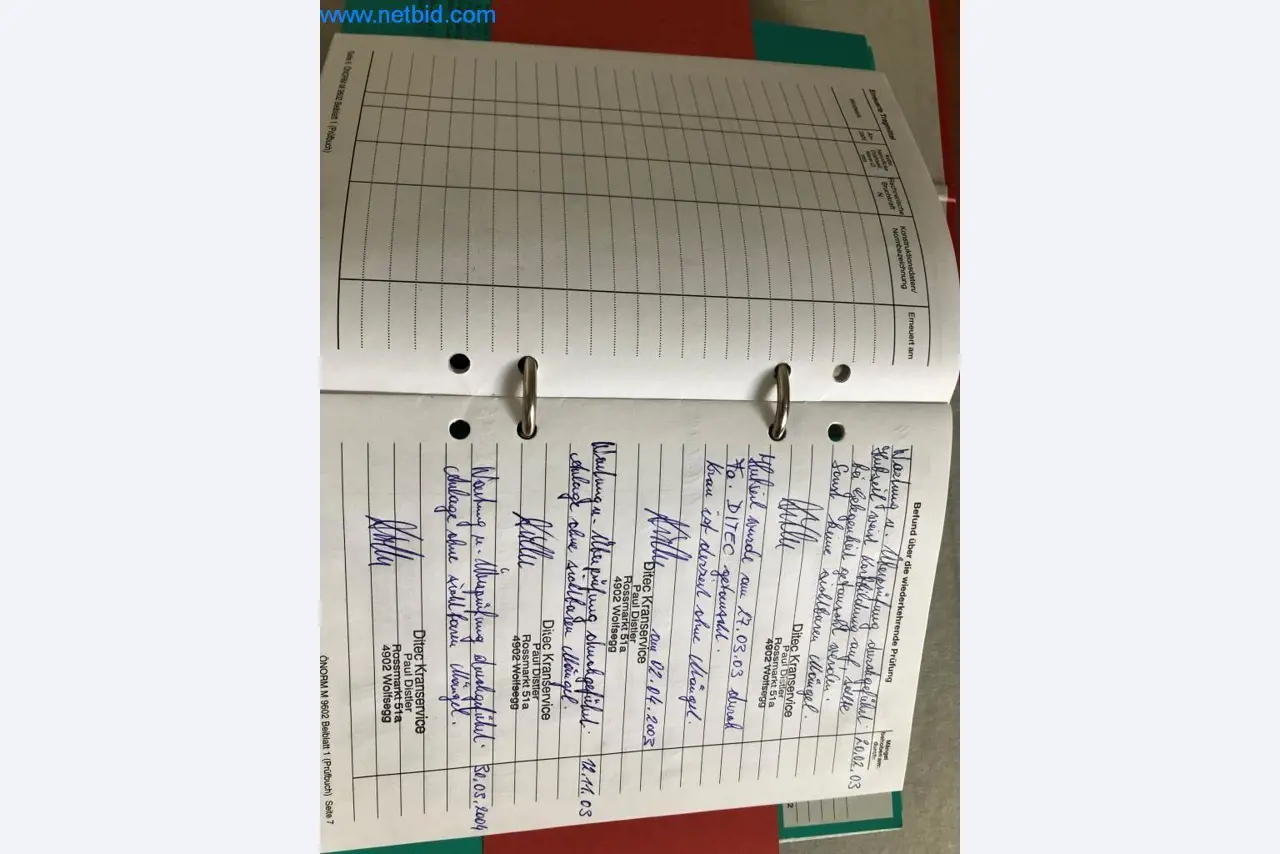 www.netbid.com
Erneuerte Tragmittel
Konstruktionsdaten/
Normbezeichnung
Erneuert am
Rechnerische
Bruchkraft
N
Seite 6 ÖNORM M 9602 Beiblatt 1 (Prüfbuch)
Befund über die wiederkehrende Prüfung
Mängel
behoben am:
durch:
Wartung u. Überprüfung durchgeführt. 20.02.03
Hubseil weist Korbbildung auf, sollte
bei Gelegenheit getauscht werden.
Sonst keine sichtbaren Mängel.
Ditec Kranservice
Paul Distler
Rossmarkt 51a
4902 Wolfsegg
Hubseil wurde am 27.03.03 durch
Fa. DITEC getauscht.
Kran ist derzeit ohne Mängel.
am 02.04.2003
Ditec Kranservice
Paul Distler
Rossmarkt 51a
4902 Wolfsegg
Wartung u. Überprüfung durchgeführt. 12.11.03
Anlage ohne sichtbaren Mängel.
Ditec Kranservice
Paul Distler
Rossmarkt 51a
4902 Wolfsegg
Wartung u. Überprüfung durchgeführt. 30.05.2004
Anlage ohne sichtbaren Mängel.
Ditec Kranservice
Paul Distler
Rossmarkt 51a
4902 Wolfsegg
ÖNORM M 9602 Beiblatt 1 (Prüfbuch) Seite 7